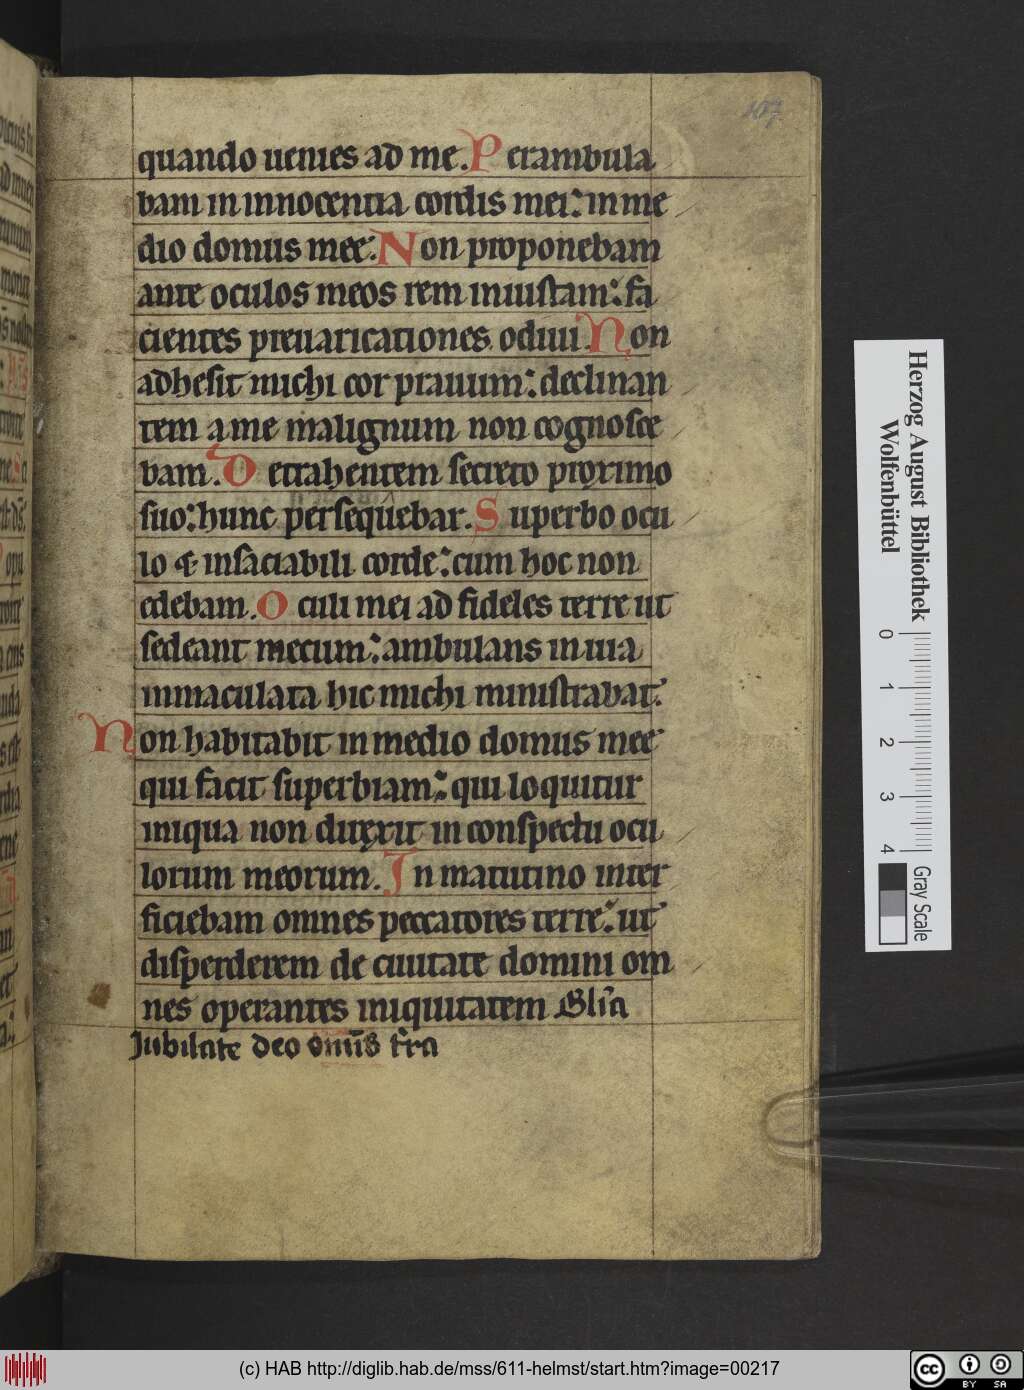 107
quando uenies ad me. Perambula
bam in innocentia cordis mei: in me
dio domus mee. Non proponebam
ante oculos meos rem iniustam: fa
cientes preuaricationes odiui. Non
adhesit michi cor prauum: declinan
tem a me malignum non cognosce
bam. Detrahentem secreto proximo
suo: hunc persequebar. Superbo ocu
lo & insaciabili corde: cum hoc non
edebam. Oculi mei ad fideles terre ut
sedeant mecum: ambulans in uia
inmaculata hic michi ministrabat.
Non habitabit in medio domus mee
qui facit superbiam: qui loquitur
iniqua non direxit in conspectu ocu
lorum meorum. In matutino inter
ficiebam omnes peccatores terre: ut
disperderem de ciuitate domini om
nes operantes iniquitatem Gl'ia
Iubilate deo omīs t'ra
Herzog August Bibliothek
Wolfenbüttel
0 1 2 3 4
Gray Scale
(c) HAB http://diglib.hab.de/mss/611-helmst/start.htm?image=00217
cc BY SA